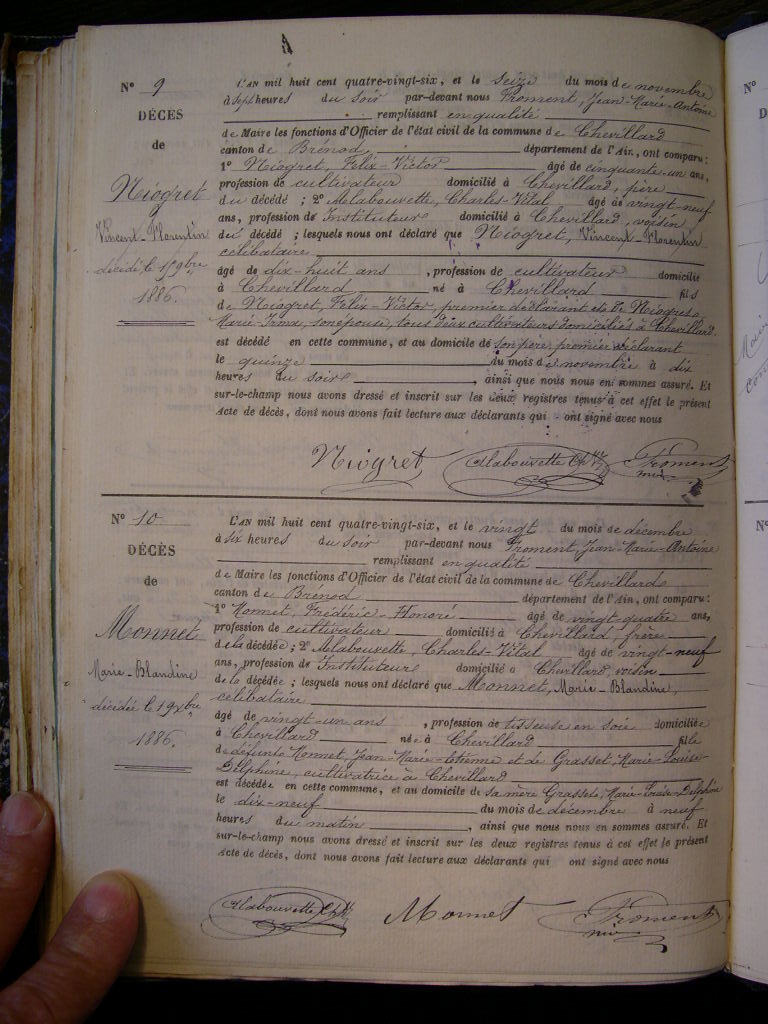 N° 9
DÉCES
de
Niogret
Vincent-Florentin
décédé le 15 9bre
1886.
L'AN mil huit cent quatre-vingt-six, et le seize du mois de novembre
à sept heures du soir par-devant nous Froment, Jean-Marie-Antoine
remplissant en qualité
de Maire les fonctions d'Officier de l'état civil de la commune de Chevillard
canton de Brénod, département de l'Ain, ont comparu:
1° Niogret, Félix-Victor âgé de cinquante-un ans,
profession de cultivateur domicilié à Chevillard, père
du décédé ; 2° Alabouvette, Charles-Vital âgé de vingt-neuf
ans, profession de Instituteur domicilié à Chevillard, voisin
du décédé ; lesquels nous ont déclaré que Niogret, Vincent-Florentin
célibataire
âgé de dix-huit ans , profession de cultivateur domicilié
à Chevillard né à Chevillard fils
de Niogret, Félix-Victor, premier déclarant et de Niogret,
Marie-Irma, son épouse, tous deux cultivateurs domiciliés à Chevillard
est décédé en cette commune, et au domicile de son père, premier déclarant
le quinze du mois de novembre à dix
heures du soir , ainsi que nous nous en sommes assuré. Et
sur-le-champ nous avons dressé et inscrit sur les deux registres tenus à cet effet le présent
Acte de décès, dont nous avons fait lecture aux déclarants qui ont signé avec nous
Niogret Alabouvette Ch Froment
N° 10
DÉCÈS
de
Monnet
Marie-Blandine
décédée le 19 xbre
1886.
L'AN mil huit cent quatre-vingt-six, et le vingt du mois de décembre
à six heures du soir par-devant nous Froment, Jean-Marie-Antoine
remplissant en qualité
de Maire les fonctions d'Officier de l'état civil de la commune de Chevillard
canton de Brénod département de l'Ain, ont comparu:
1° Monnet, Frédéric-Honoré âgé de vingt-quatre ans,
profession de cultivateur domicilié à Chevillard, frère
de la décédée ; 2° Alabouvette, Charles-Vital âgé de vingt-neuf
ans, profession de Instituteur domicilié à Chevillard, voisin
de la décédée ; lesquels nous ont déclaré que Monnet, Marie-Blandine,
célibataire
âgé de vingt-un ans , profession de tisseuse en soie domiciliée
à Chevillard née à Chevillard fille
de défunt Monnet, Jean-Marie-Etienne et de Grasset, Marie-Louise
Delphine, cultivatrice à Chevillard
est décédée en cette commune, et au domicile de sa mère Grasset, Marie-Louise-Delphine
le dix-neuf du mois de décembre à neuf
heures du matin , ainsi que nous nous en sommes assuré. Et
sur-le-champ nous avons dressé et inscrit sur les deux registres tenus à cet effet le présent
Acte de décès, dont nous avons fait lecture aux déclarants qui ont signé avec nous
Alabouvette Ch Monnet Froment